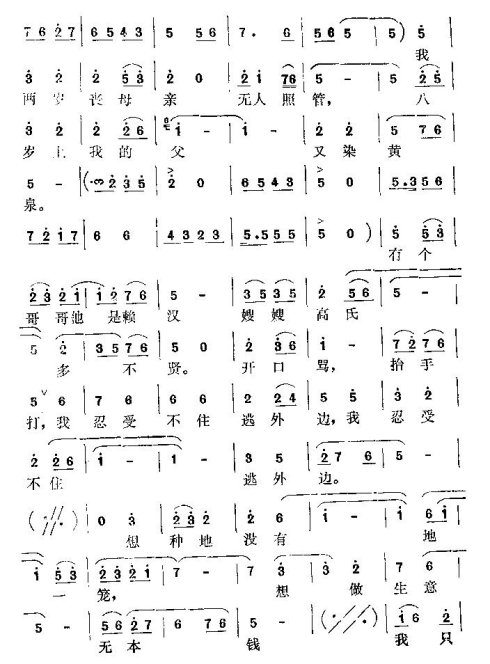 7 6 2 7 | 6 5 4 3 | 5 5 6 | 7. 6 | 5 6 5 | 5 - | 5 ) 5 |
我
3 2 | 2 5 3 | 2 0 | 2 1 7 6 | 5 - | 5 2 5 |
两岁丧母亲 无人照管，八
3 2 | 2 2 6 | 1 - | 1 - | 2 2 | 5 7 6 |
岁上我的父 又染黄
5 - | ( 3 2 3 5 | 2 0 | 6 5 4 3 | 5 0 | 5.3 5 6 |
泉。
7 2 1 7 | 6 6 | 4 3 2 3 | 5.5 5 5 | 5 0 ) | 5 5 3 |
有个
2 3 2 1 | 1 2 7 6 | 5 - | 3 5 3 5 | 2 5 6 | 5 - |
哥哥他是赖汉 嫂嫂高氏
5 2 | 3 5 7 6 | 5 0 | 2 3 6 | 1 - | 7 2 7 6 |
多不贤。开口骂，抬手
5 6 | 7 6 | 5 6 | 2 2 4 | 5 5 | 7 6 |
打，我忍受不住逃外边，我忍受
2 2 6 | 1 - | 1 - | 3 5 | 2 7 6 | 5 - |
不住 逃外边。
( / / ) | 0 3 | 2 3 2 | 2 6 | 1 - | 1 - | 6 1 |
想种地没有 地
1 5 3 | 2 3 2 1 | 7 - | 7 3 | 3 2 | 7 6 |
一笼， 想做生意
5 - | 5 5 6 | 2 7 | 6 7 6 | 5 - | ( / / ) | 1 6 2 |
无本 钱 我只